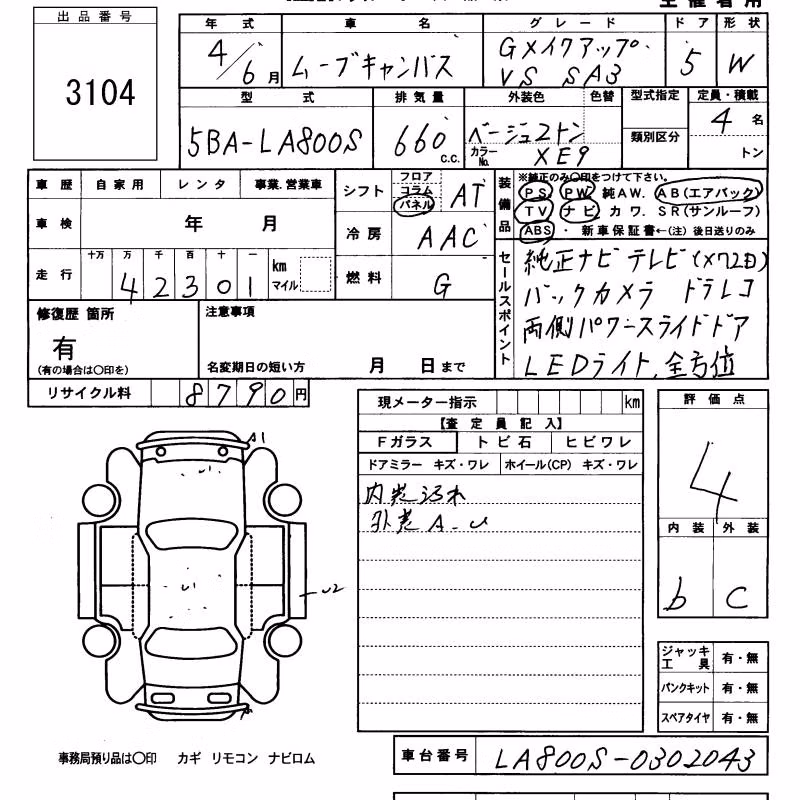 出品番号
3104
年式 車名 グレード ドア 形状
4/6月 ムーブキャンバス GメイクアップVS SAⅢ 5 W
型式 排気量 外装色 色替 型式指定 定員・積載
5BA-LA800S 660 C.C. ベージュ2トン 類別区分 4名
カラーNo. XE9 トン
車歴 自家用 レンタ 事業.営業車
シフト フロア コラム パネル AT
装備品 ※純正のみ○印をつけて下さい。
PS PW 純AW. AB(エアバック)
TV ナビ カワ. SR(サンルーフ)
ABS ・ 新車保証書←(注) 後日送りのみ
車検 年 月
冷房 AAC
走行 十万 万 千 百 十 一
42301 km マイル
燃料 G
セールスポイント
純正ナビテレビ(X72日)
バックカメラ ドラレコ
両側パワースライドドア
LEDライト,全方位
修復歴 箇所
有
(有の場合は○印を)
注意事項
名変期日の短い方 月 日まで
リサイクル料 8790円
現メーター指示 km
【査定員記入】
Fガラス トビ石 ヒビワレ
ドアミラー キズ・ワレ ホイール(CP) キズ・ワレ
内装汚れ
外装A-U
評価点
4
内装 外装
b C
A1
U1
U1
U2
A
ジャッキ工具 有・無
パンクキット 有・無
スペアタイヤ 有・無
事務局預り品は○印 カギ リモコン ナビロム
車台番号 LA800S-0302043